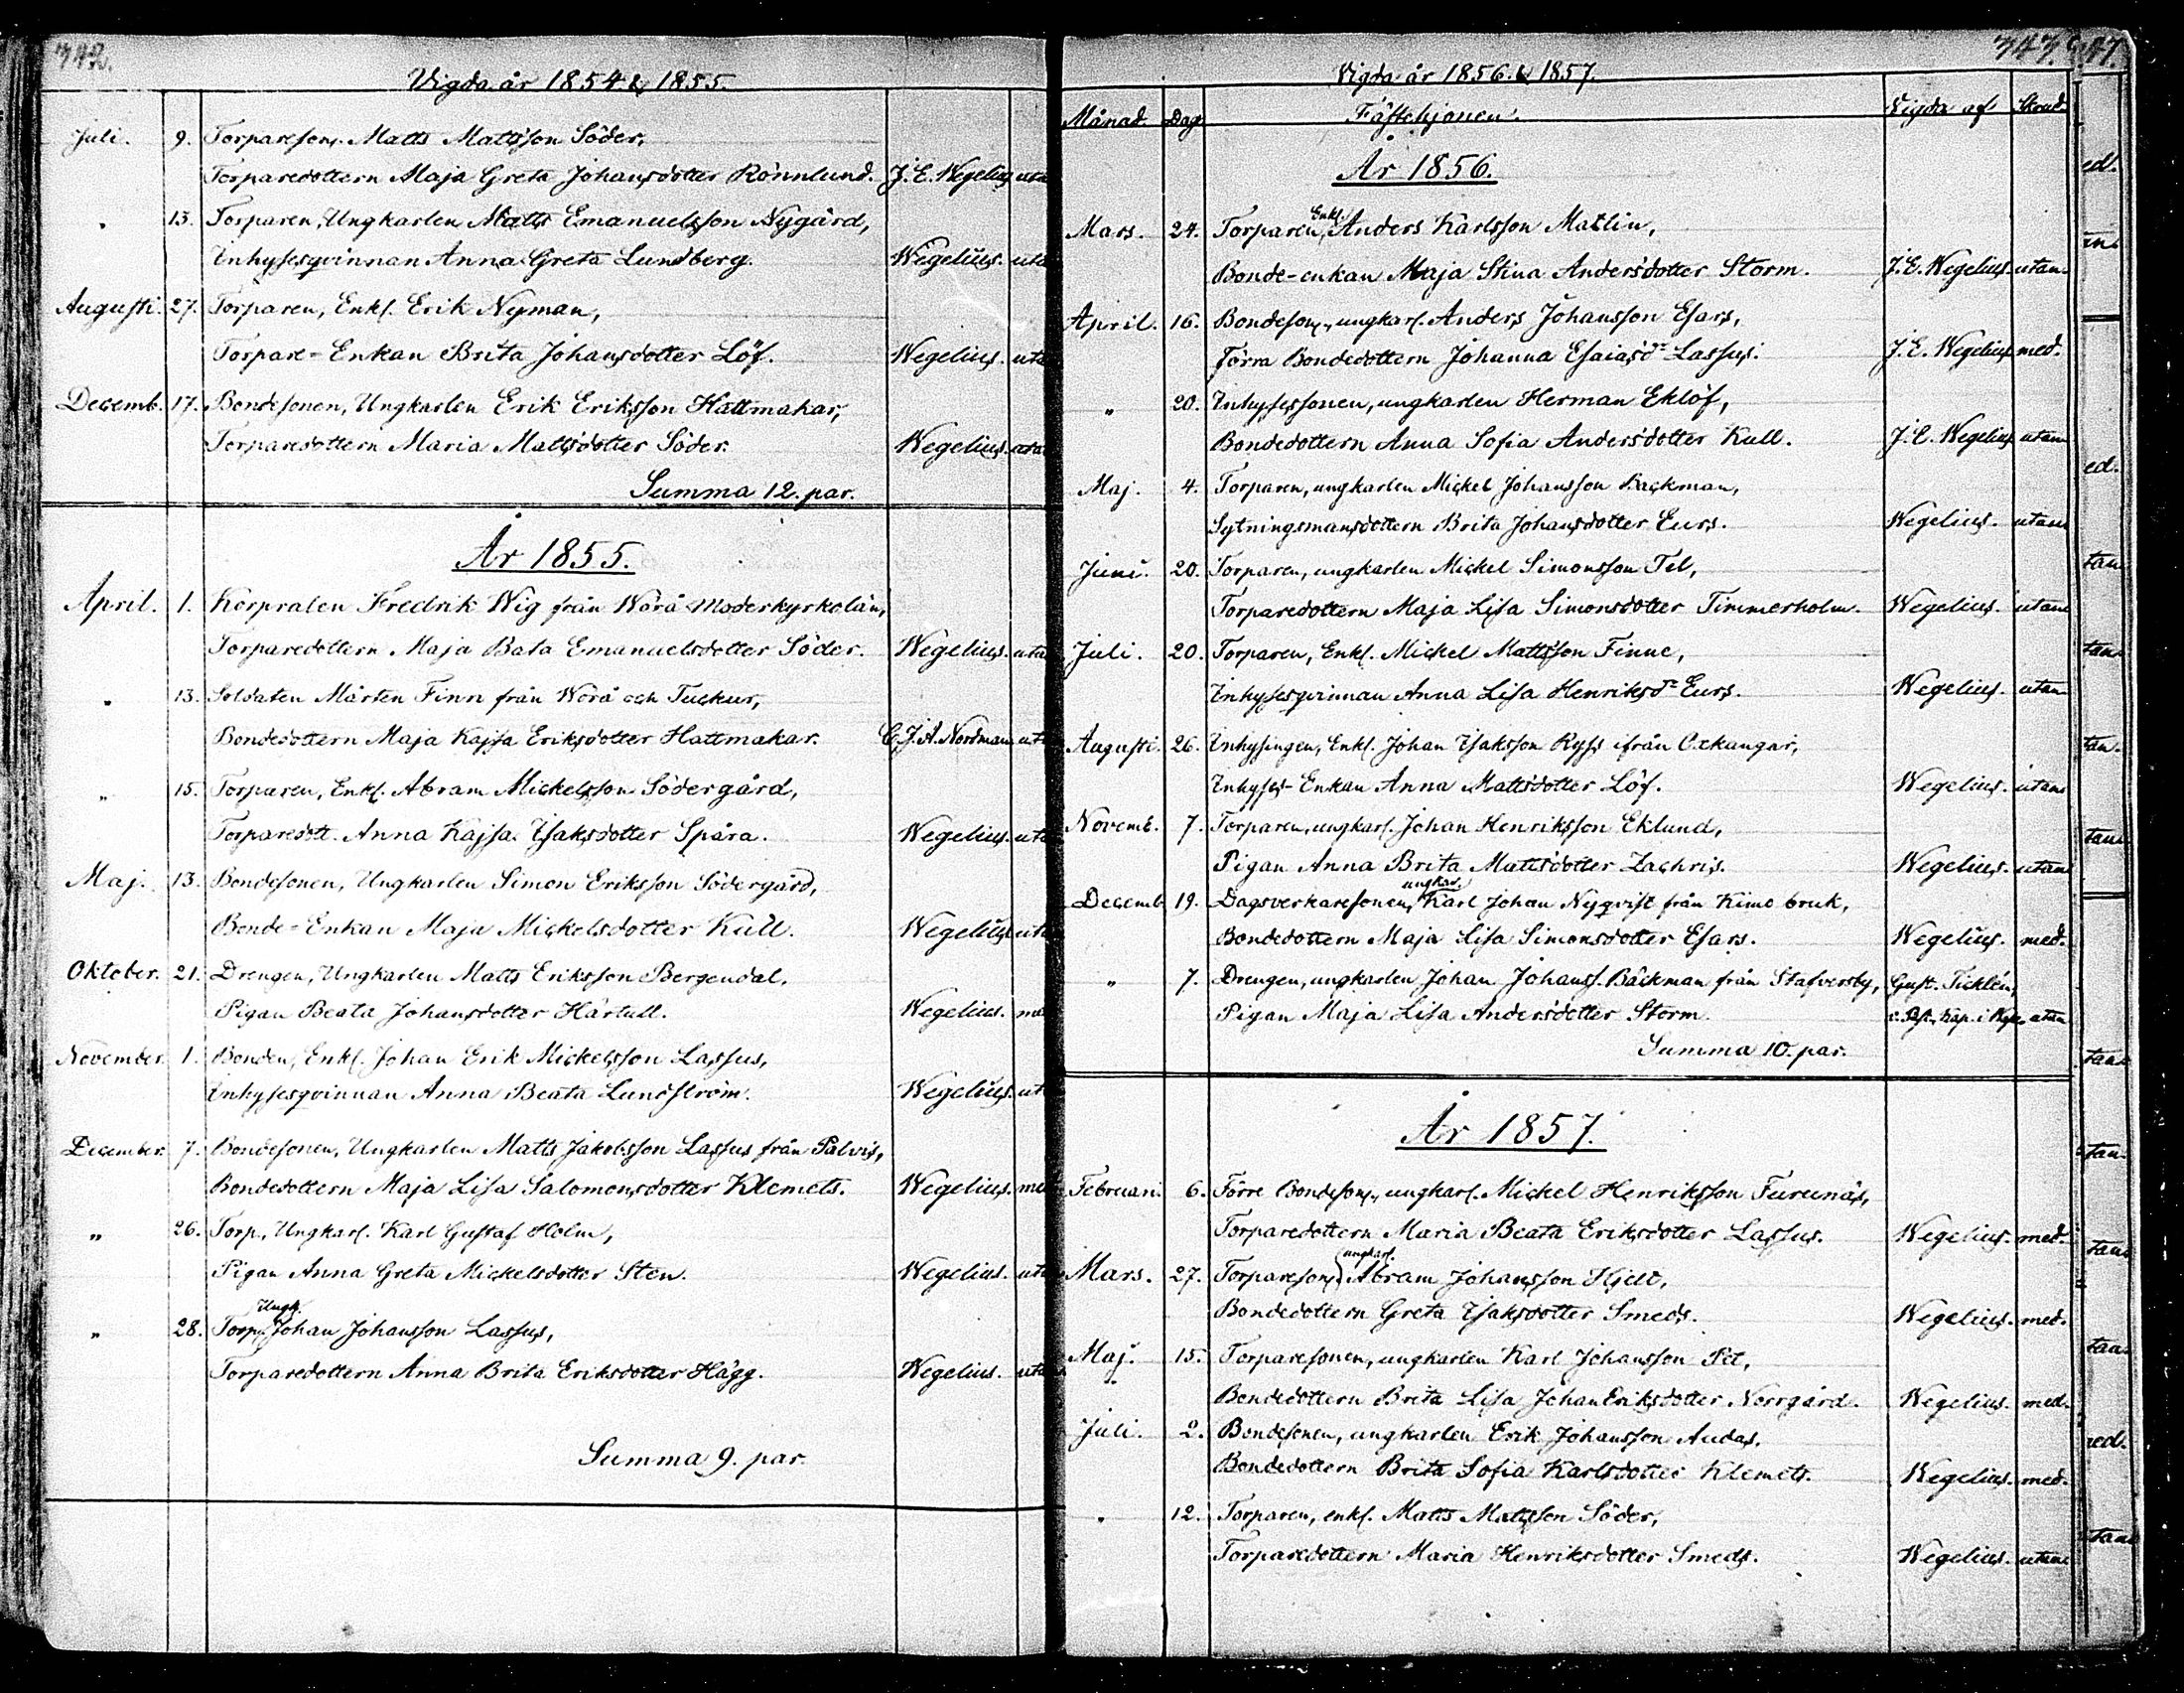 342.
Vigda år 1854 & 1855.
Juli. 9. Torpareson. Matts Mattsson Söder,
Torparedottern Maja Greta Johansdotter Rönnlund. J. E. Wegelius uta
" 13. Torparen, Ungkarlen Matts Emanuelsson Nygård,
Inhysesqvinnan Anna Greta Lundberg. Wegelius. uta
Augusti. 27. Torparen, Enkl. Erik Nyman,
Torpare-Enkan Brita Johansdotter Löf. Wegelius. uta
Decemb. 17. Bondesonen, Ungkarlen Erik Eriksson Hattmakar,
Torparedottern Maria Mattsdotter Söder. Wegelius. uta
Summa 12. par.
År 1855.
April. 1. Korpralen Fredrik Wig från Wörå Moderkyrkolän,
Torparedottern Maja Bata Emanuelsdotter Söder. Wegelius. uta
" 13. Soldaten Mårten Finn från Wörå och Tuckur,
Bondedottern Maja Kajsa Eriksdotter Hattmakar. C. J. A. Nordman ut
" 15. Torparen, Enkl. Abram Mickelsson Södergård,
Torparedott. Anna Kajsa Isaksdotter Spåra. Wegelius. uta
Maj. 13. Bondesonen, Ungkarlen Simon Eriksson Södergård,
Bonde-Enkan Maja Mickelsdotter Kull. Wegelius uta
Oktober. 21. Drengen, Ungkarlen Matts Eriksson Bergendal,
Pigan Beata Johansdotter Härtull. Wegelius. me
November. 1. Bonden, Enkl. Johan Erik Mickelsson Lassus,
Inhysesqvinnan Anna Beata Lundström. Wegelius. ut
December. 7. Bondesonen, Ungkarlen Matts Jakobsson Lassus från Palvis,
Bondedottern Maja Lisa Salomonsdotter Klemets. Wegelius. me
" 26. Torp., Ungkarl. Karl Gustaf Holm,
Pigan Anna Greta Mickelsdotter Sten. Wegelius. ut
" 28. Torp. Ungk. Johan Johansson Lassus,
Torparedottern Anna Brita Eriksdotter Hägg. Wegelius. uta
Summa 9. par.
343.
Vigda år 1856. & 1857.
Månad. Dag Fästehjonen. Vigda af Skrud.
År 1856.
Mars. 24. Torparen, Enkl. Anders Karlsson Matlin,
Bonde-enkan Maja Stina Andersdotter Storm. J. E. Wegelius. utan.
April. 16. Bondeson., ungkarl. Anders Johansson Esars,
Förra Bondedottern Johanna Esaiasdr Lassus. J. E. Wegelius med.
" 20. Inhysessonen, ungkarlen Herman Eklöf,
Bondedottern Anna Sofia Andersdotter Kull. J. E. Wegelius utan
Maj. 4. Torparen, ungkarlen Mickel Johansson Backman,
Sytningsmansdottern Brita Johansdotter Eurs. Wegelius. utan
Juni. 20. Torparen, ungkarlen Mickel Simonsson Tel,
Torparedottern Maja Lisa Simonsdotter Timmerholm. Wegelius. utan
Juli. 20. Torparen, Enkl. Mickel Mattsson Finne,
Inhysesqvinnan Anna Lisa Henriksdr Eurs. Wegelius. utan
Augusti. 26. Inhysingen, Enkl. Johan Isaksson Ryss ifrån Oxkangar,
Inhyses-Enkan Anna Mattsdotter Löf. Wegelius. utan
Novemb. 7. Torparen, ungkarl. Johan Henriksson Eklund,
Pigan Anna Brita Mattsdotter Zachris. Wegelius. utan
Decemb 19. Dagsverkaresonen, ungkar. Karl Johan Nyqvist från Kimo bruk,
Bondedottern Maja Lisa Simonsdotter Esars. Wegelius. med.
" 7. Drengen, ungkarlen Johan Johanss. Bäckman från Stafversby, Gust. Ticklén,
Pigan Maja Lisa Andersdotter Storm. utan
Summa 10. par.
År 1857.
Februari. 6. Förre Bondeson., ungkarl. Mickel Henriksson Furunäs,
Torparedottern Maria Beata Eriksdotter Lassus. Wegelius. med.
Mars. 27. Torpareson, ungkarl. Abram Johansson Hjelt,
Bondedottern Greta Isaksdotter Smeds. Wegelius. med.
Maj. 15. Torparesonen, ungkarlen Karl Johansson Pet,
Bondedottern Brita Lisa Johan Eriksdotter Norrgård. Wegelius. med.
Juli. 2. Bondesonen, ungkarlen Erik Johansson Audas,
Bondedottern Brita Sofia Karlsdotter Klemets. Wegelius. med.
" 12. Torparen, enkl. Matts Mattsson Söder,
Torparedottern Maria Henriksdotter Smeds. Wegelius. utan